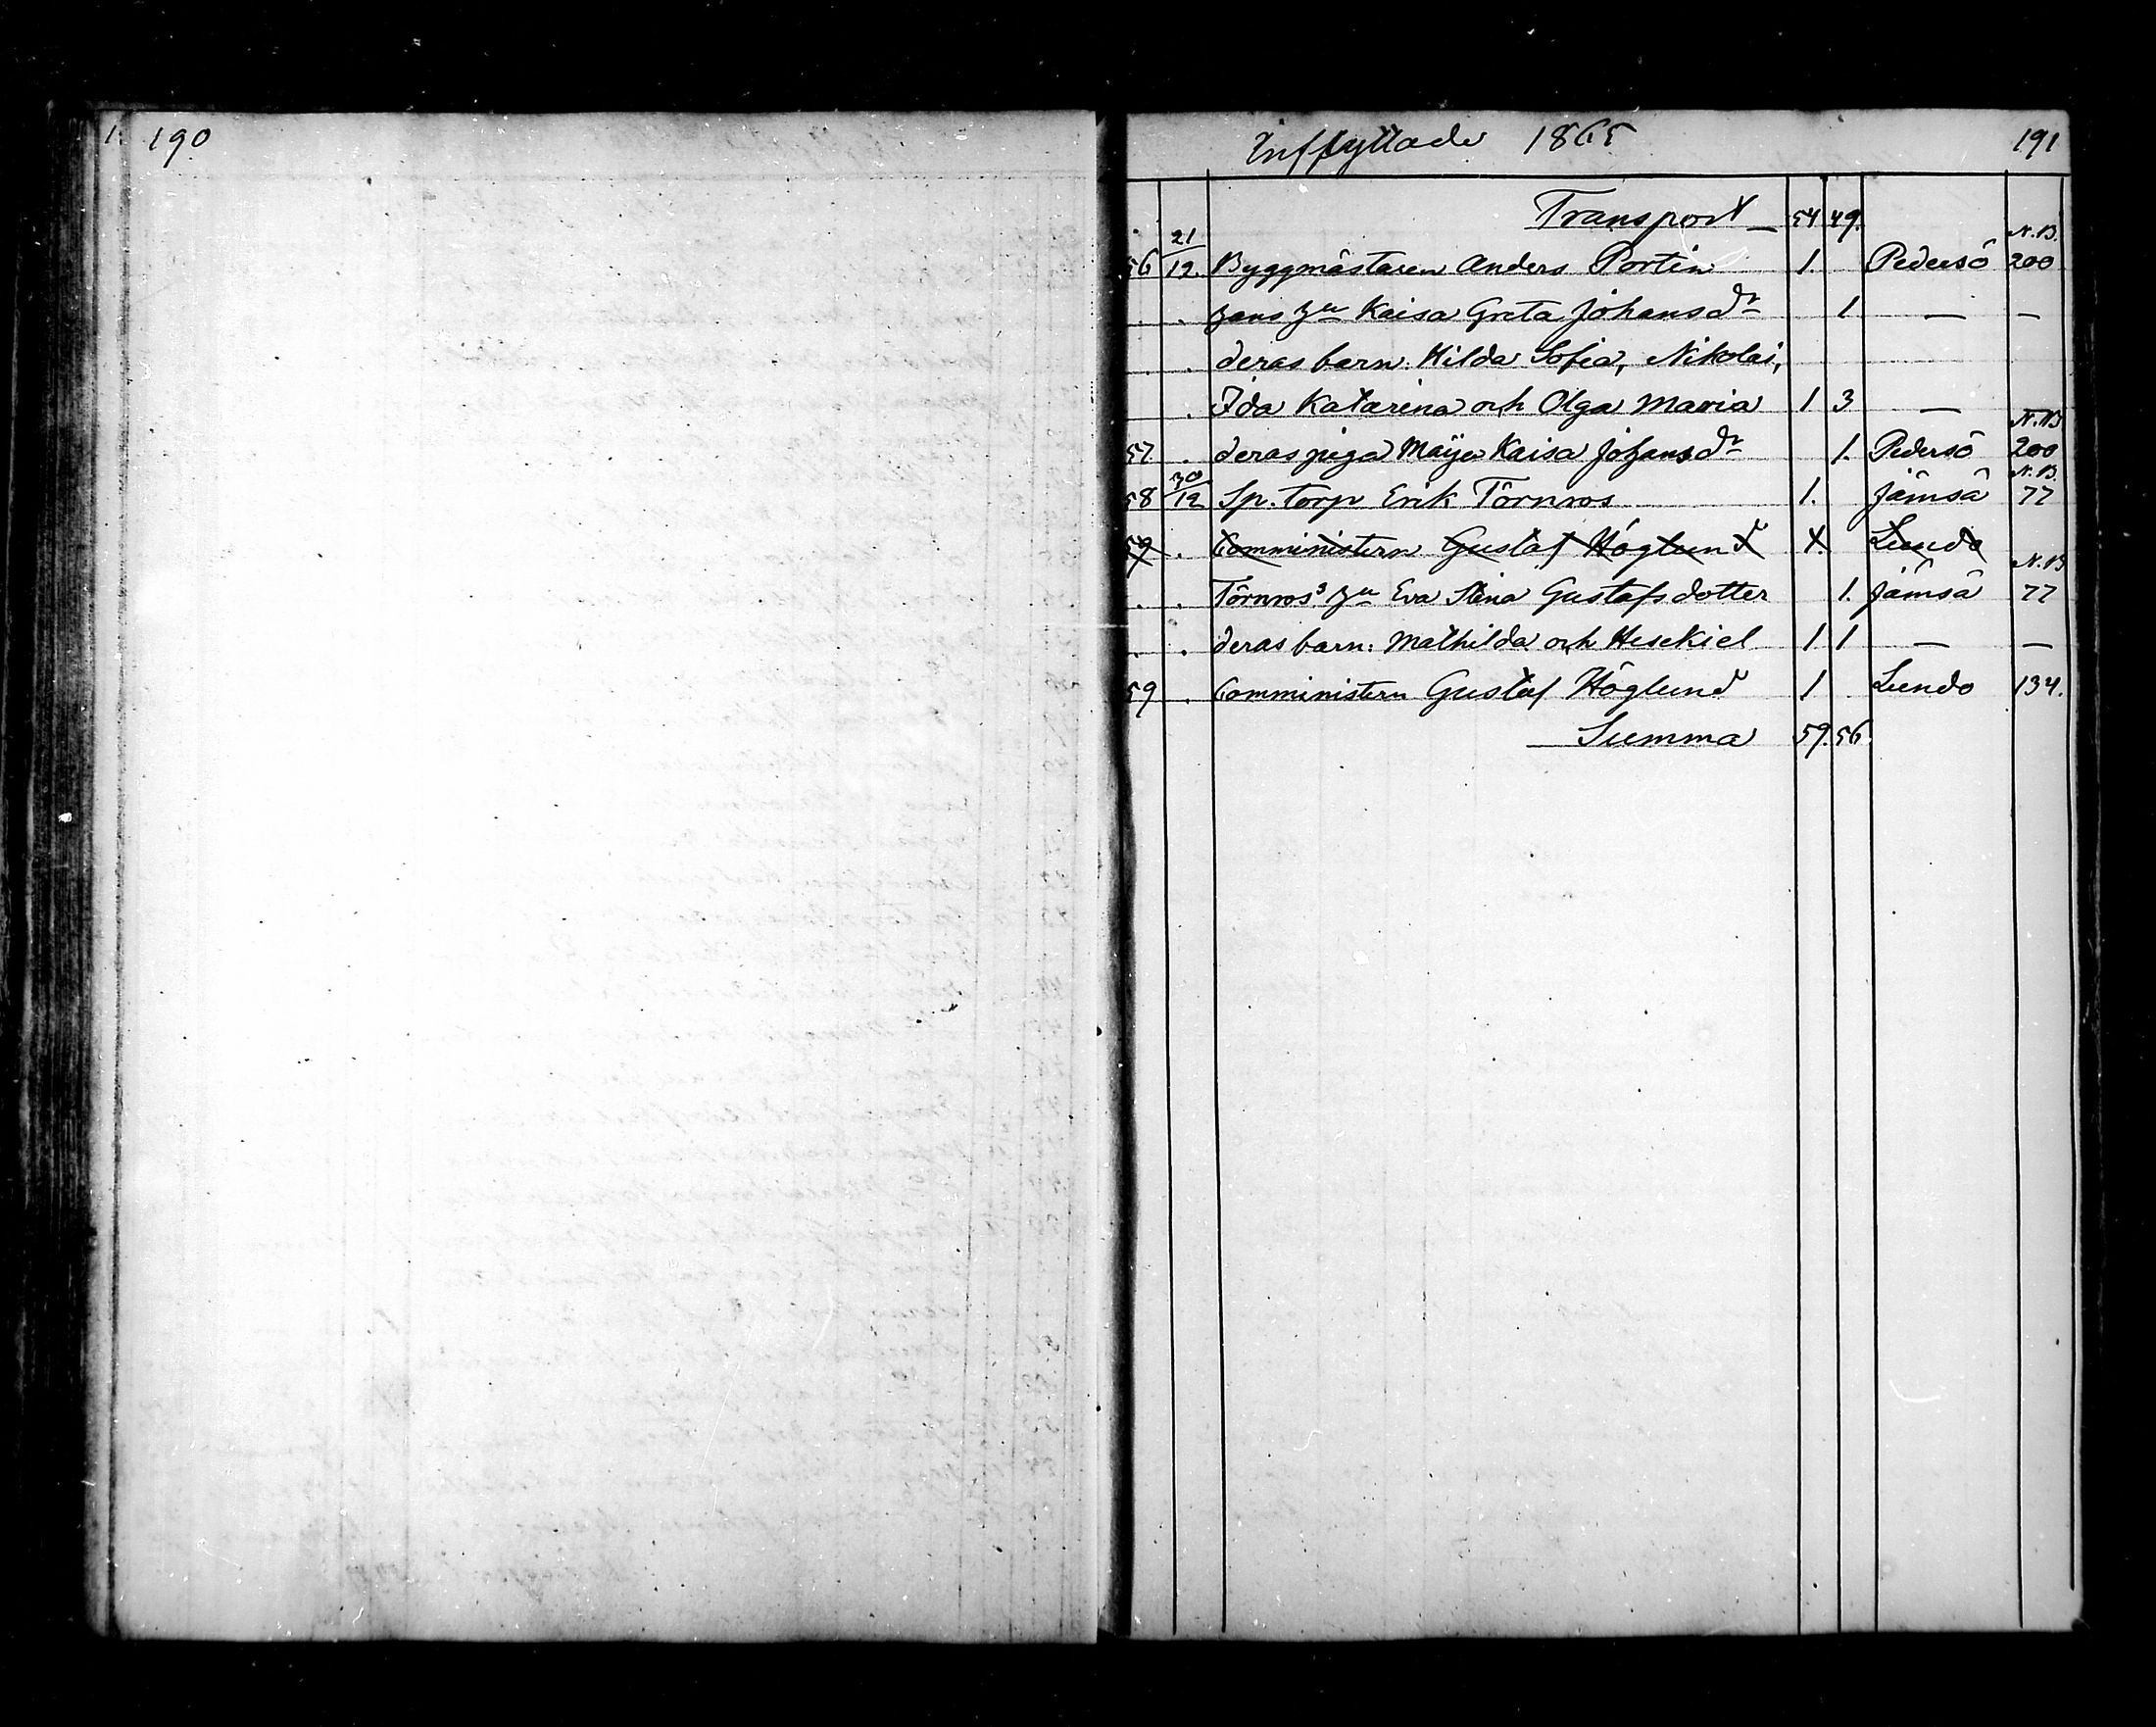 190
Inflyttade 1865 191
Transport 54 49.
56 21/12. Byggmästaren Anders Portin 1. Pedersö N.B. 200
hans hu Kaisa Greta Johansdr 1 — —
deras barn: Hilda Sofia, Nikolai,
Ida Katarina och Olga Maria 1 3 — —
57 . deras piga Maija Kaisa Johansdr 1. Pedersö N.B 200
58 30/12 Sp. torp Erik Törnroos 1. Jämsä N.B. 77
59 . Comministern Gustaf Höglund 1. Lundo
. . Törnroos's hu Eva Stina Gustafsdotter 1. Jämsä N.B 77
. . deras barn: Mathilda och Hesekiel 1 1 — —
59 . Comministern Gustaf Höglund 1 Lundo 134.
Summa 59. 56.